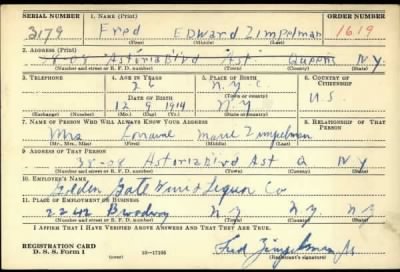 SERIAL NUMBER 1. NAME (Print) ORDER NUMBER
3179 Fred EDward Zimpelman 1619
(First) (Middle) (Last)
2. ADDRESS (Print)
38-08 Astoria Blvd Ast. Queens N.Y.
(Number and street or R. F. D. number) (Town) (County) (State)
3. TELEPHONE 4. AGE IN YEARS 5. PLACE OF BIRTH 6. COUNTRY OF CITIZENSHIP
26 N.Y.C.
DATE OF BIRTH (Town or county) U.S.
12 9 1914 N.Y
(Exchange) (Number) (Mo.) (Day) (Yr.) (State or country)
7. NAME OF PERSON WHO WILL ALWAYS KNOW YOUR ADDRESS 8. RELATIONSHIP OF THAT PERSON
Mrs Lorraine Marie Zimpelman
(Mr., Mrs., Miss) (First) (Middle) (Last)
9. ADDRESS OF THAT PERSON
38-08 Astoria Blvd Ast Q NY
(Number and street or R. F. D. number) (Town) (County) (State)
10. EMPLOYER'S NAME
Golden Gate Wine & Liquor Co
11. PLACE OF EMPLOYMENT OR BUSINESS
2242 Broadway N.Y. N.Y. N.Y.
(Number and street or R. F. D. number) (Town) (County) (State)
I AFFIRM THAT I HAVE VERIFIED ABOVE ANSWERS AND THAT THEY ARE TRUE.
REGISTRATION CARD
D. S. S. Form 1 16—17105 Fred Zimpelman Jr